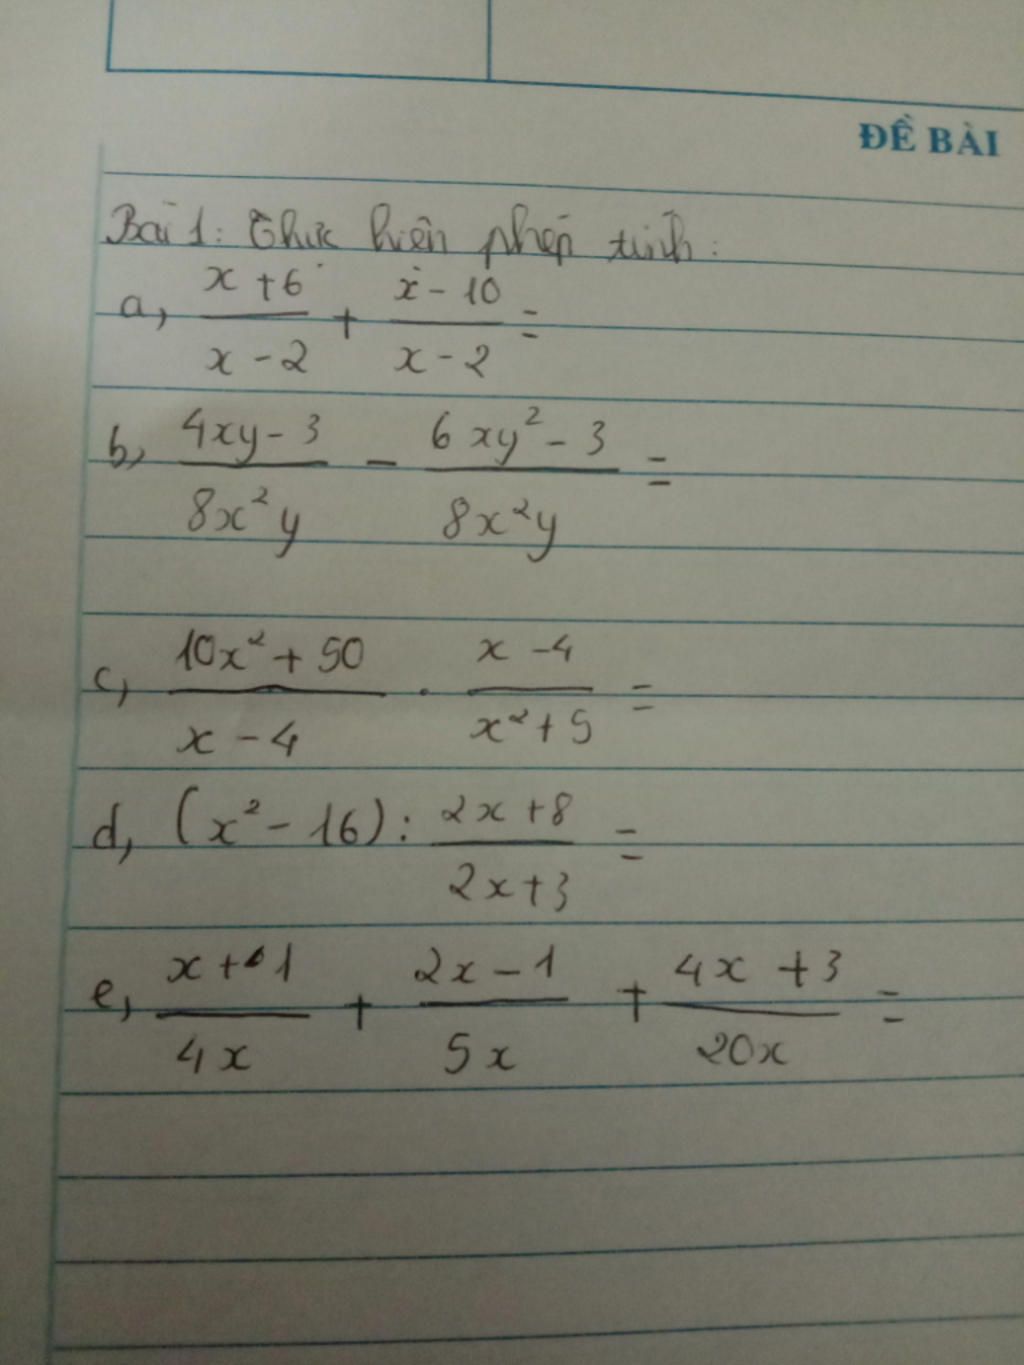 ĐỀ BÀI
Bài 1: Thực hiện phép tính:
a, (x + 6)/(x - 2) + (x - 10)/(x - 2) =
b, (4xy - 3)/(8x²y) - (6xy² - 3)/(8x²y) =
c, (10x² + 50)/(x - 4) . (x - 4)/(x² + 5) =
d, (x² - 16) : (2x + 8)/(2x + 3) =
e, (x + 1)/(4x) + (2x - 1)/(5x) + (4x + 3)/(20x) =